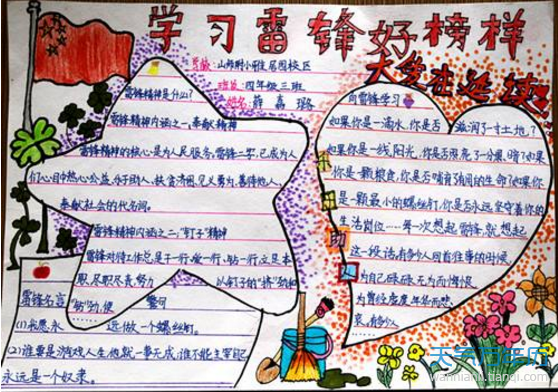 学习雷锋好榜样
大爱在延续
学校：山师附小雅居园校区
班级：四年级三班
姓名：薛嘉璐
雷锋精神是什么？
雷锋精神内涵之一：奉献精神
雷锋精神的核心是为人民服务，雷锋二字，已成为人
们心目中热心公益、乐于助人、扶贫济困、见义勇为、善待他人、
奉献社会的代名词。
雷锋精神内涵之二："钉子"精神
雷锋对待工作总是干一行、爱一行、钻一行，立足本
职、尽职尽责，努力以钉子的"挤"劲和
"钻"劲，使
向雷锋学习
如果你是一滴水，你是否滋润了一寸土地？
如果你是一线阳光，你是否照亮了一分黑暗？如果
你是一颗粮食，你是否哺育了有用的生命？如果你
是一颗最小的螺丝钉，你是否永远坚守着你的
生活岗位……每一次想起雷锋，就想起
这一段话，有多少人回首往事的时候，
为自己碌碌无为而悔恨，
为曾经虚度年华而悲
哀，有多少人
……
乐
于
助
人
雷锋名言
(1)永愿永……远做一个螺丝钉。
(2)谁要是游戏人生，他就一事无成，谁不能主宰自己，
永远是一个奴隶。